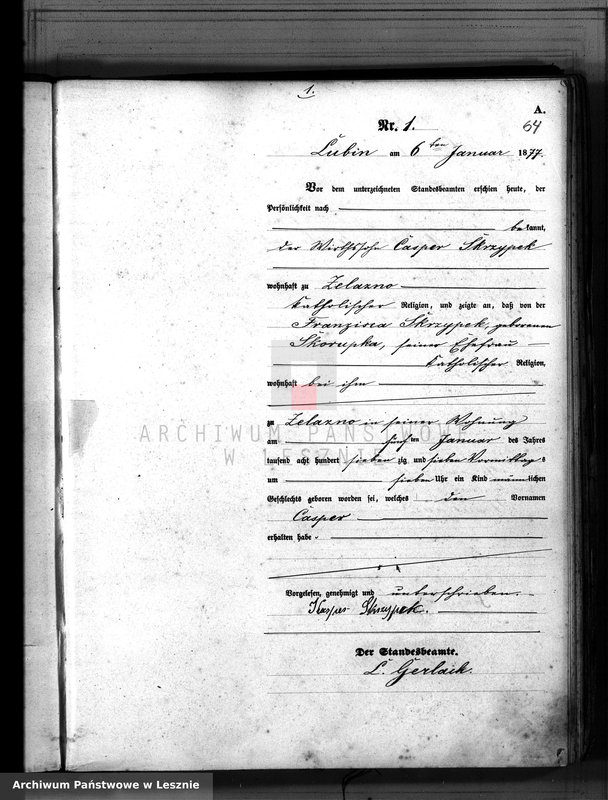 1.
A.
Nr. 1.
64
Lubin am 6ten Januar 1877.
Vor dem unterzeichneten Standesbeamten erschien heute, der
Persönlichkeit nach
bekannt,
der Wirthssohn Casper Skrzypek
wohnhaft zu Zelazno
katholischer Religion, und zeigte an, daß von der
Franzisca Skrzypek, geborenen
Skorupka, seiner Ehefrau
katholischer Religion,
wohnhaft bei ihm
zu Zelazno in seiner Wohnung
am fünften Januar des Jahres
tausend acht hundert siebenzig und sieben Vormittags
um sieben Uhr ein Kind männlichen
Geschlechts geboren worden sei, welches den Vornamen
Casper
erhalten habe.
Vorgelesen, genehmigt und unterschrieben.
Kasper Skrzypek.
Der Standesbeamte.
L. Gerlach.
ARCHIWUM PAŃSTWOWE
W LESZNIE
Archiwum Państwowe w Lesznie